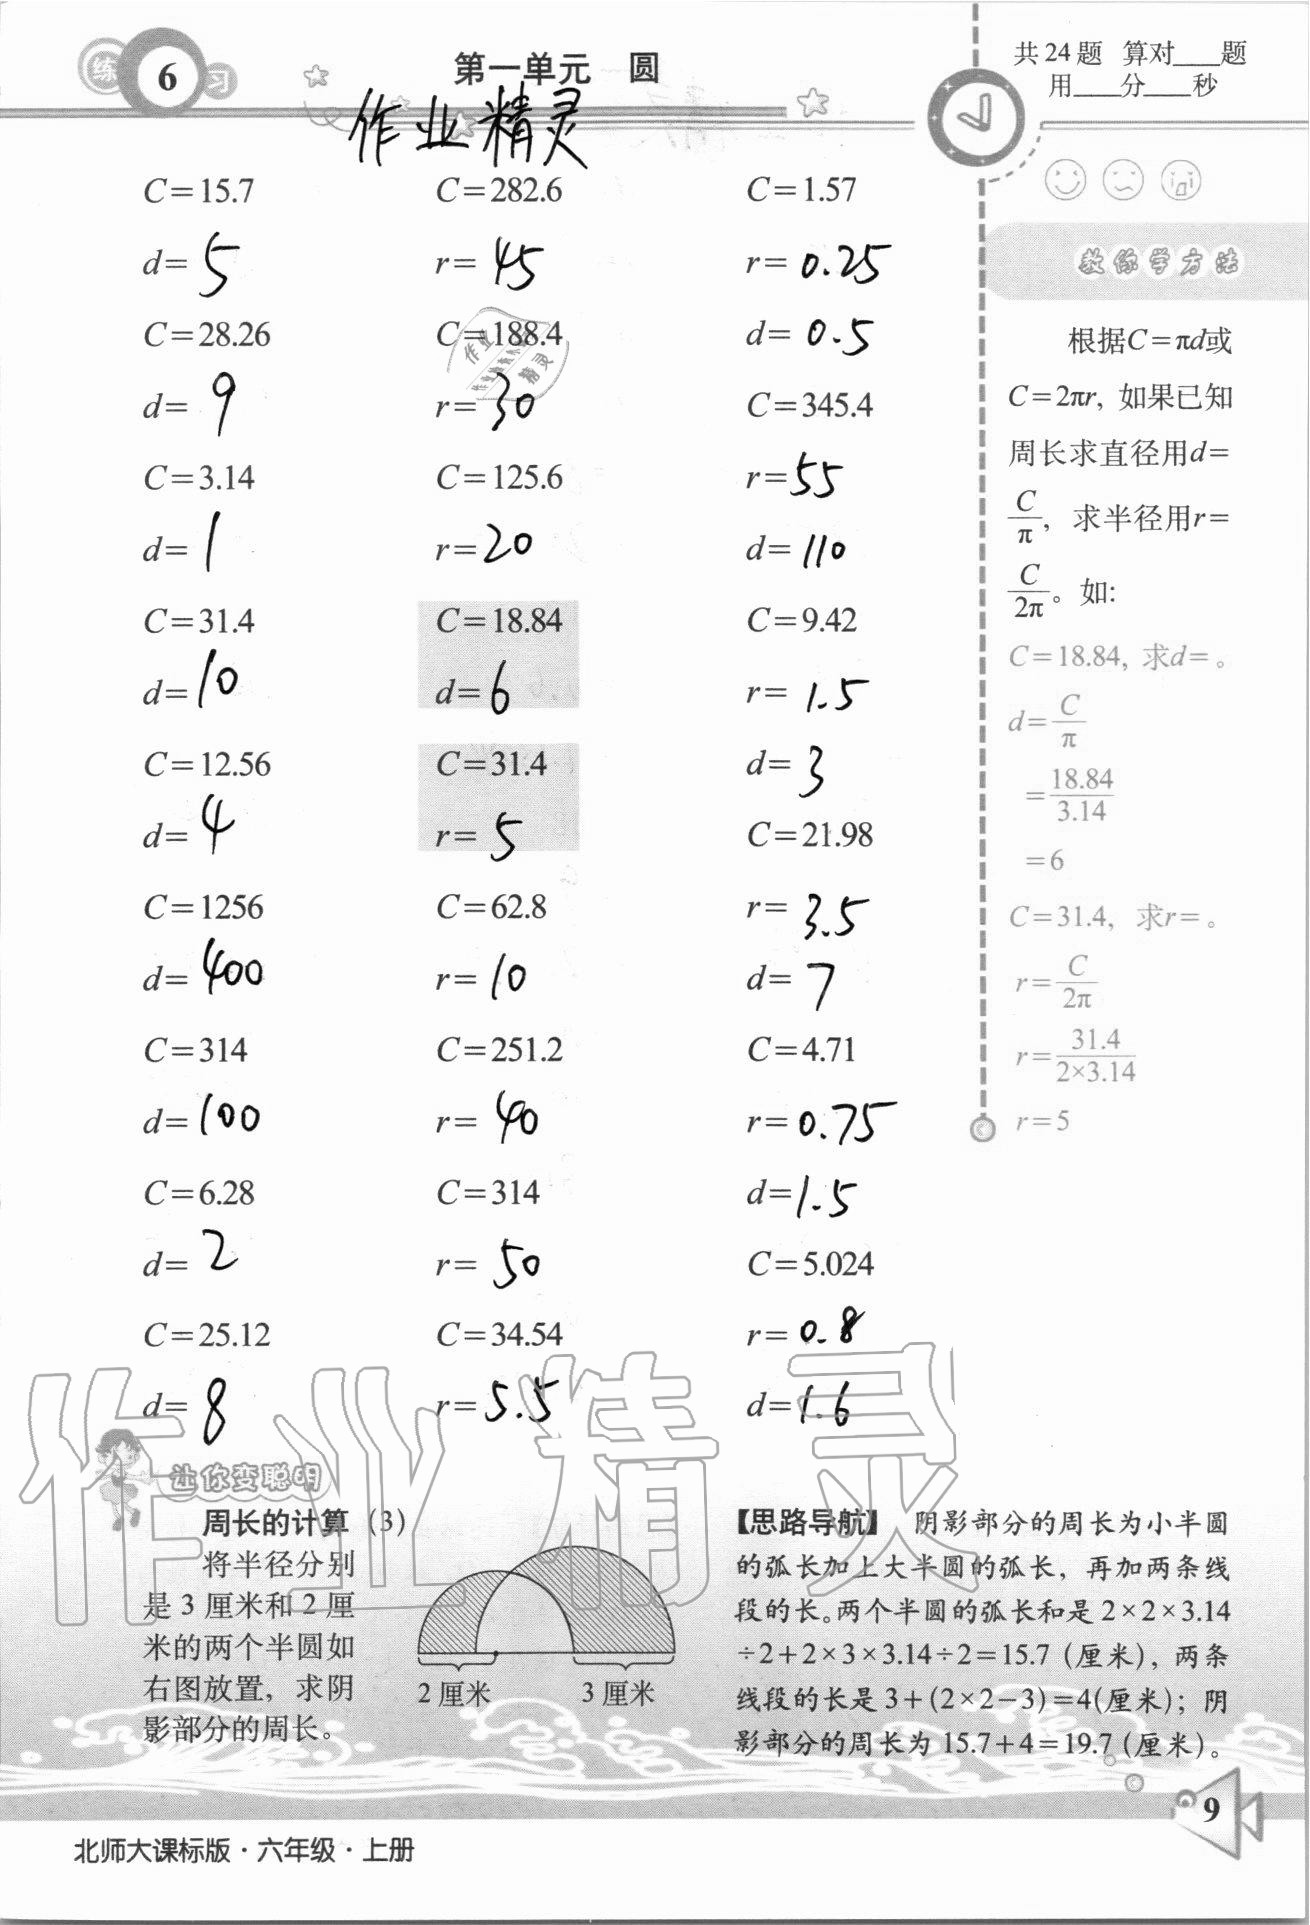 练 6 习
第一单元 圆
共24题 算对___题
用___分___秒
作业精灵
C=15.7
d=5
C=28.26
d=9
C=3.14
d=1
C=31.4
d=10
C=12.56
d=4
C=1256
d=400
C=314
d=100
C=6.28
d=2
C=25.12
d=8
C=282.6
r=45
C=188.4
r=30
C=125.6
r=20
C=18.84
d=6
C=31.4
r=5
C=62.8
r=10
C=251.2
r=40
C=314
r=50
C=34.54
r=5.5
C=1.57
r=0.25
d=0.5
C=345.4
r=55
d=110
C=9.42
r=1.5
d=3
C=21.98
r=3.5
d=7
C=4.71
r=0.75
d=1.5
C=5.024
r=0.8
d=1.6
教你学方法
根据C=πd或
C=2πr, 如果已知
周长求直径用d=
C/π, 求半径用r=
C/2π。如:
C=18.84, 求d=。
d=C/π
=18.84/3.14
=6
C=31.4, 求r=。
r=C/2π
r=31.4/2×3.14
r=5
作业精灵
让你变聪明
周长的计算 (3)
将半径分别
是3厘米和2厘
米的两个半圆如
右图放置，求阴
影部分的周长。
2厘米 3厘米
【思路导航】 阴影部分的周长为小半圆
的弧长加上大半圆的弧长，再加两条线
段的长。两个半圆的弧长和是2×2×3.14
÷2+2×3×3.14÷2=15.7(厘米)，两条
线段的长是3+(2×2-3)=4(厘米)；阴
影部分的周长为15.7+4=19.7(厘米)。
9
北师大课标版·六年级·上册